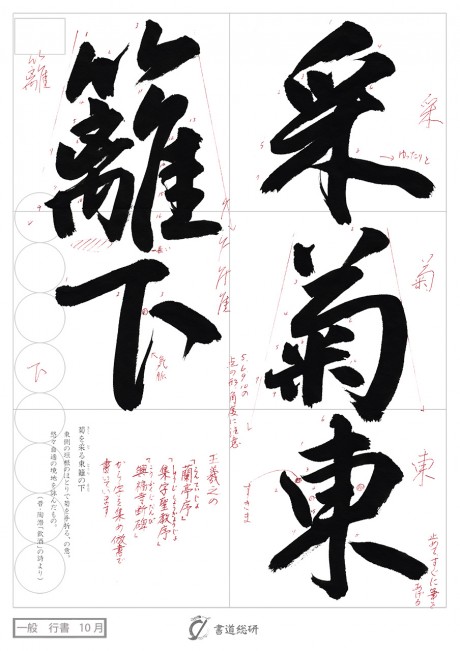 采菊東
籬下
采
菊
東
籬
下
ゆったりと
5.6.9.10の
点の形、角度に注意
すきま
気脈
長い
王羲之の
「蘭亭序」
「集字聖教序」
「興福寺断碑」
から字を集め倣書で
書いています
菊を采る東籬の下
東側の垣根のほとりで菊を手折る、の意。
悠々自適の境地を詠んだもの。
(晋・陶潜「飲酒」の詩より)
一般 行書 10月
書道総研